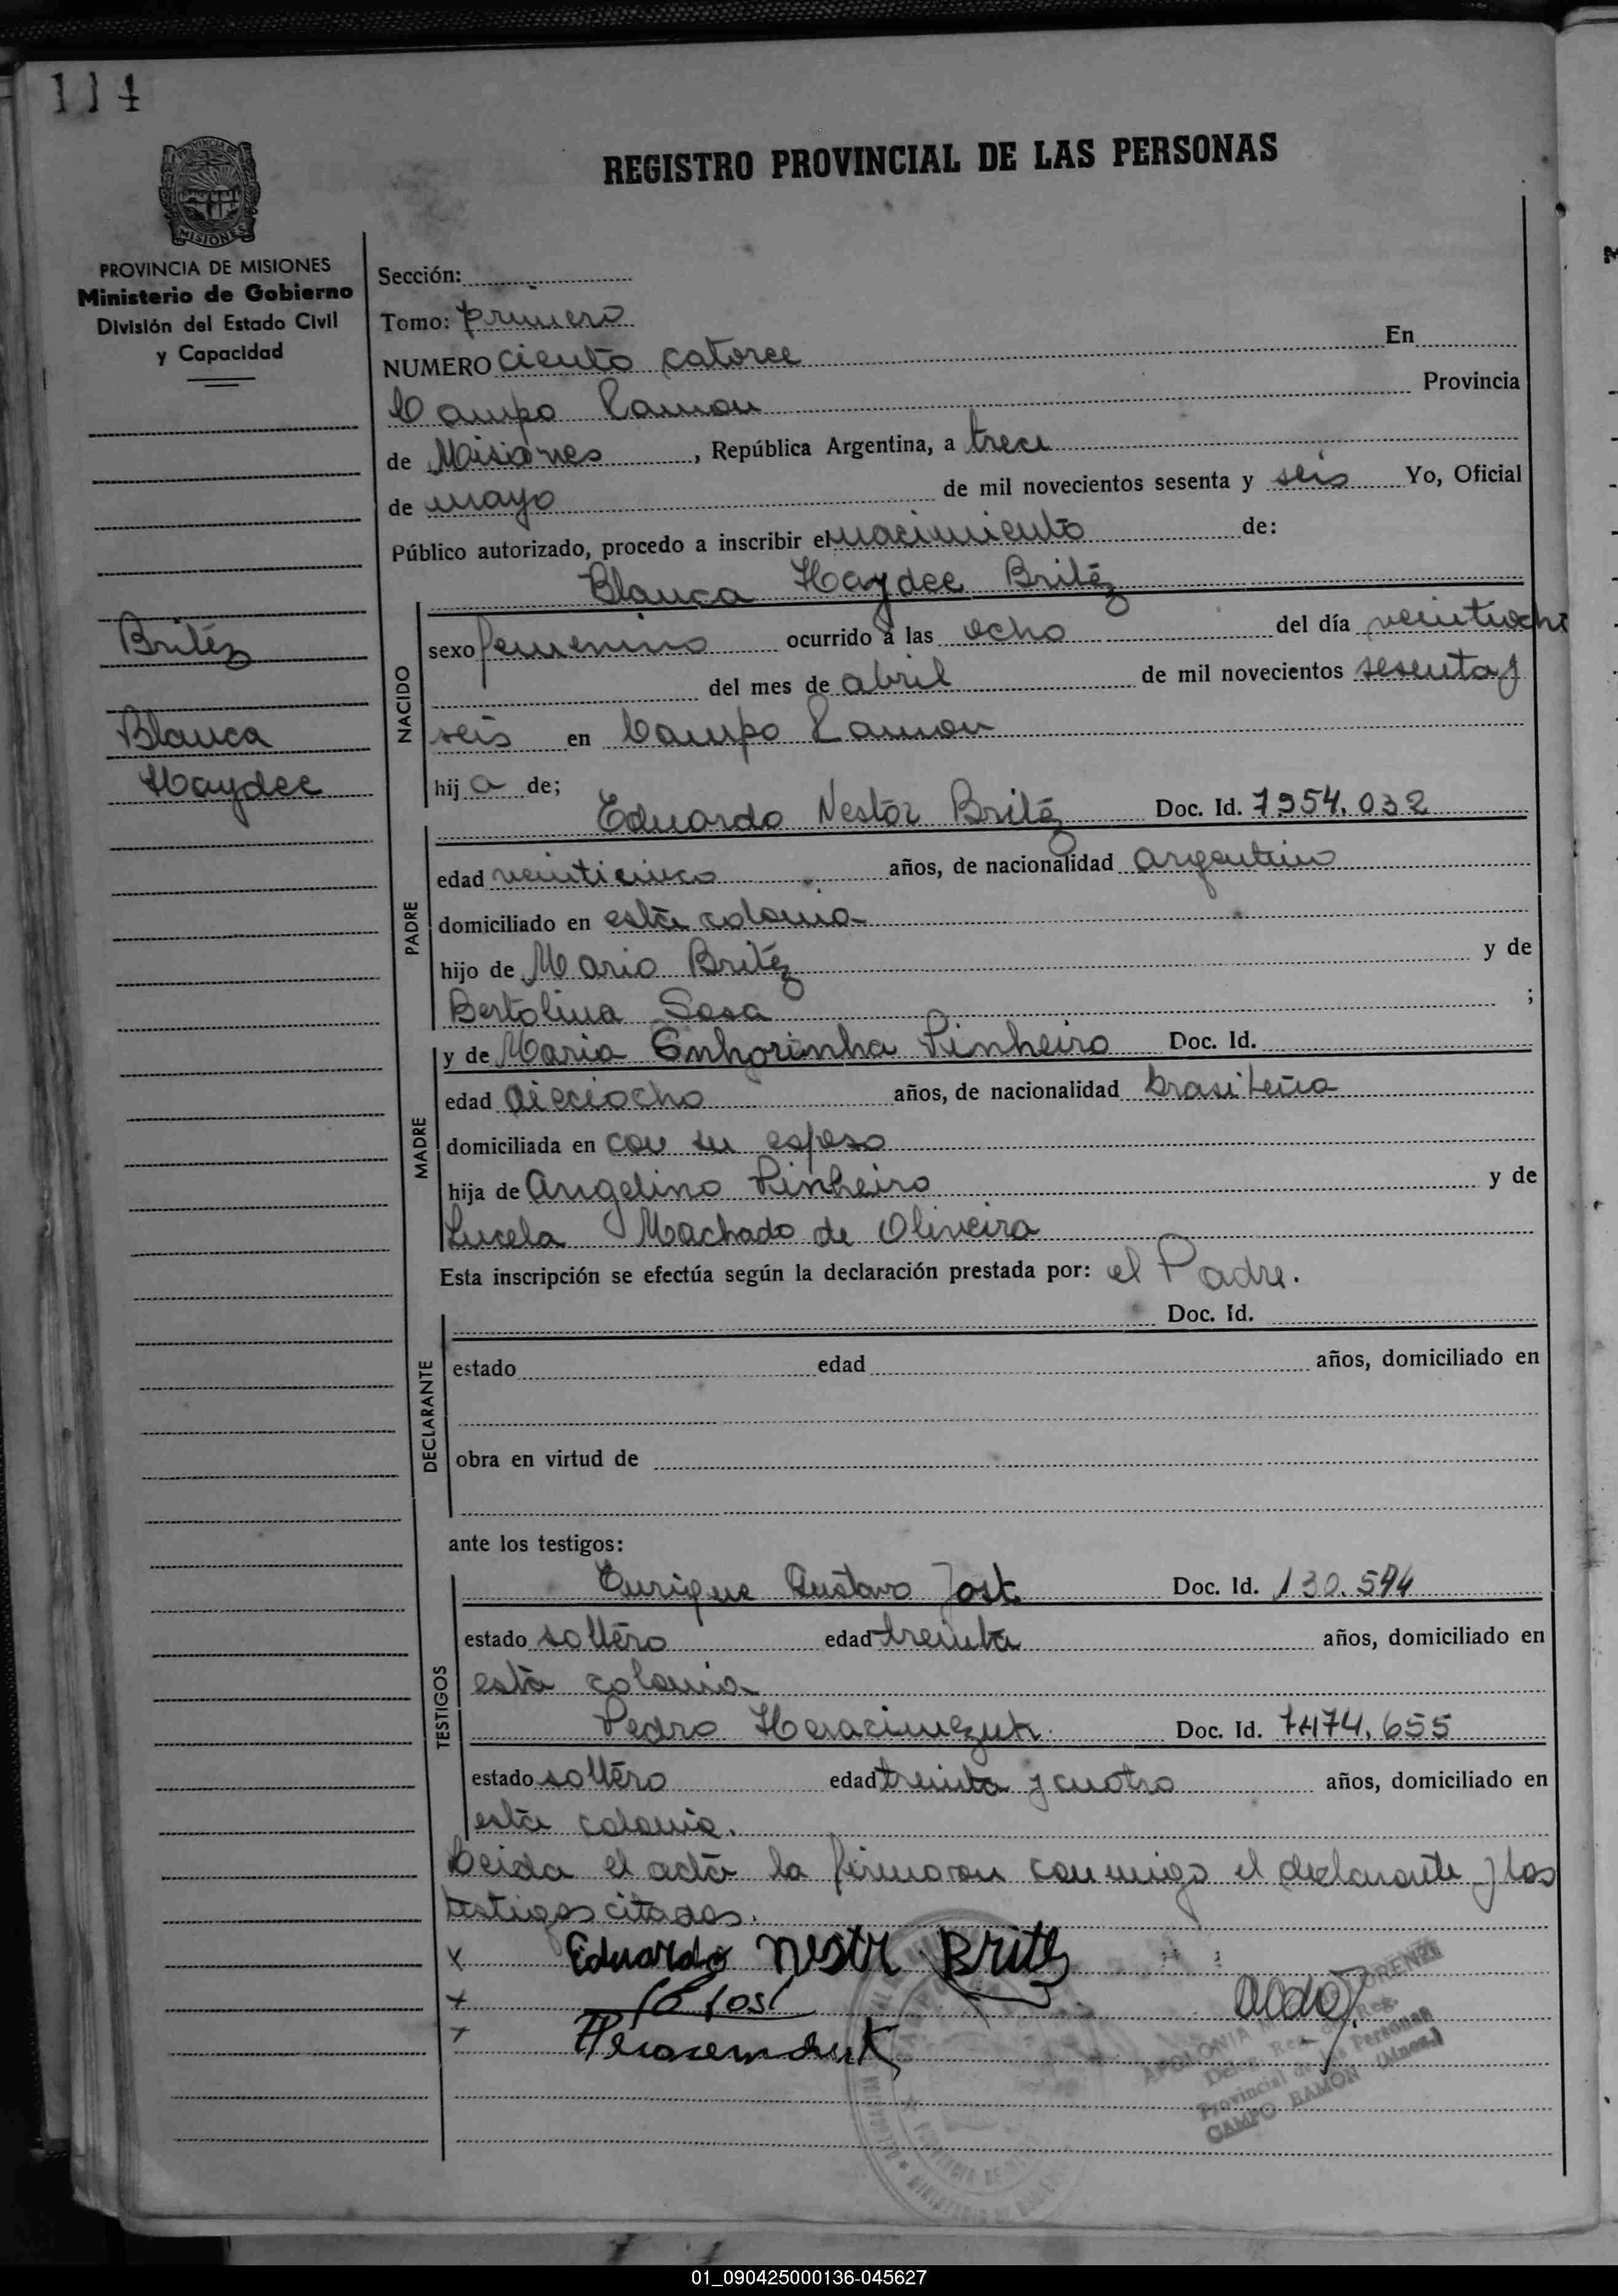 114
REGISTRO PROVINCIAL DE LAS PERSONAS
PROVINCIA DE MISIONES
Ministerio de Gobierno
División del Estado Civil
y Capacidad
Britéz
Blanca
Haydee
Sección:
Tomo: primero
NUMERO ciento catorce En
Campo Ramon Provincia
de Misiones, República Argentina, a trece
de mayo de mil novecientos sesenta y seis Yo, Oficial
Público autorizado, procedo a inscribir el nacimiento de:
Blanca Haydee Britéz
NACIDO
sexo femenino ocurrido a las ocho del día veintiocho
del mes de abril de mil novecientos sesenta y
seis en Campo Ramon
hij a de;
Eduardo Nestor Britéz Doc. Id. 7954.032
PADRE
edad veinticinco años, de nacionalidad argentino
domiciliado en esta colonia
hijo de Mario Britéz y de
Bertolina Sosa ;
MADRE
y de Maria Enhorinha Pinheiro Doc. Id.
edad dieciocho años, de nacionalidad brasileña
domiciliada en con su esposo
hija de Angelino Pinheiro y de
Lucela Machado de Oliveira
Esta inscripción se efectúa según la declaración prestada por: el Padre.
Doc. Id.
DECLARANTE
estado edad años, domiciliado en
obra en virtud de
ante los testigos:
Enrique Gustavo Jost Doc. Id. 130.594
TESTIGOS
estado soltero edad treinta años, domiciliado en
esta colonia
Pedro Doc. Id. 7474.655
estado soltero edad treinta y cuatro años, domiciliado en
esta colonia.
Leida el acta la firmaron conmigo el declarante y los
testigos citados.
Eduardo Nestr Britz
Jost
APOLONIA LORENZI
Provincial de las Personas
CAMPO RAMON (Mnes.)
01_090425000136-045627